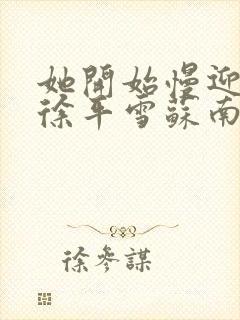 她開始慢迎
徐平雪蘇南
徐參謀